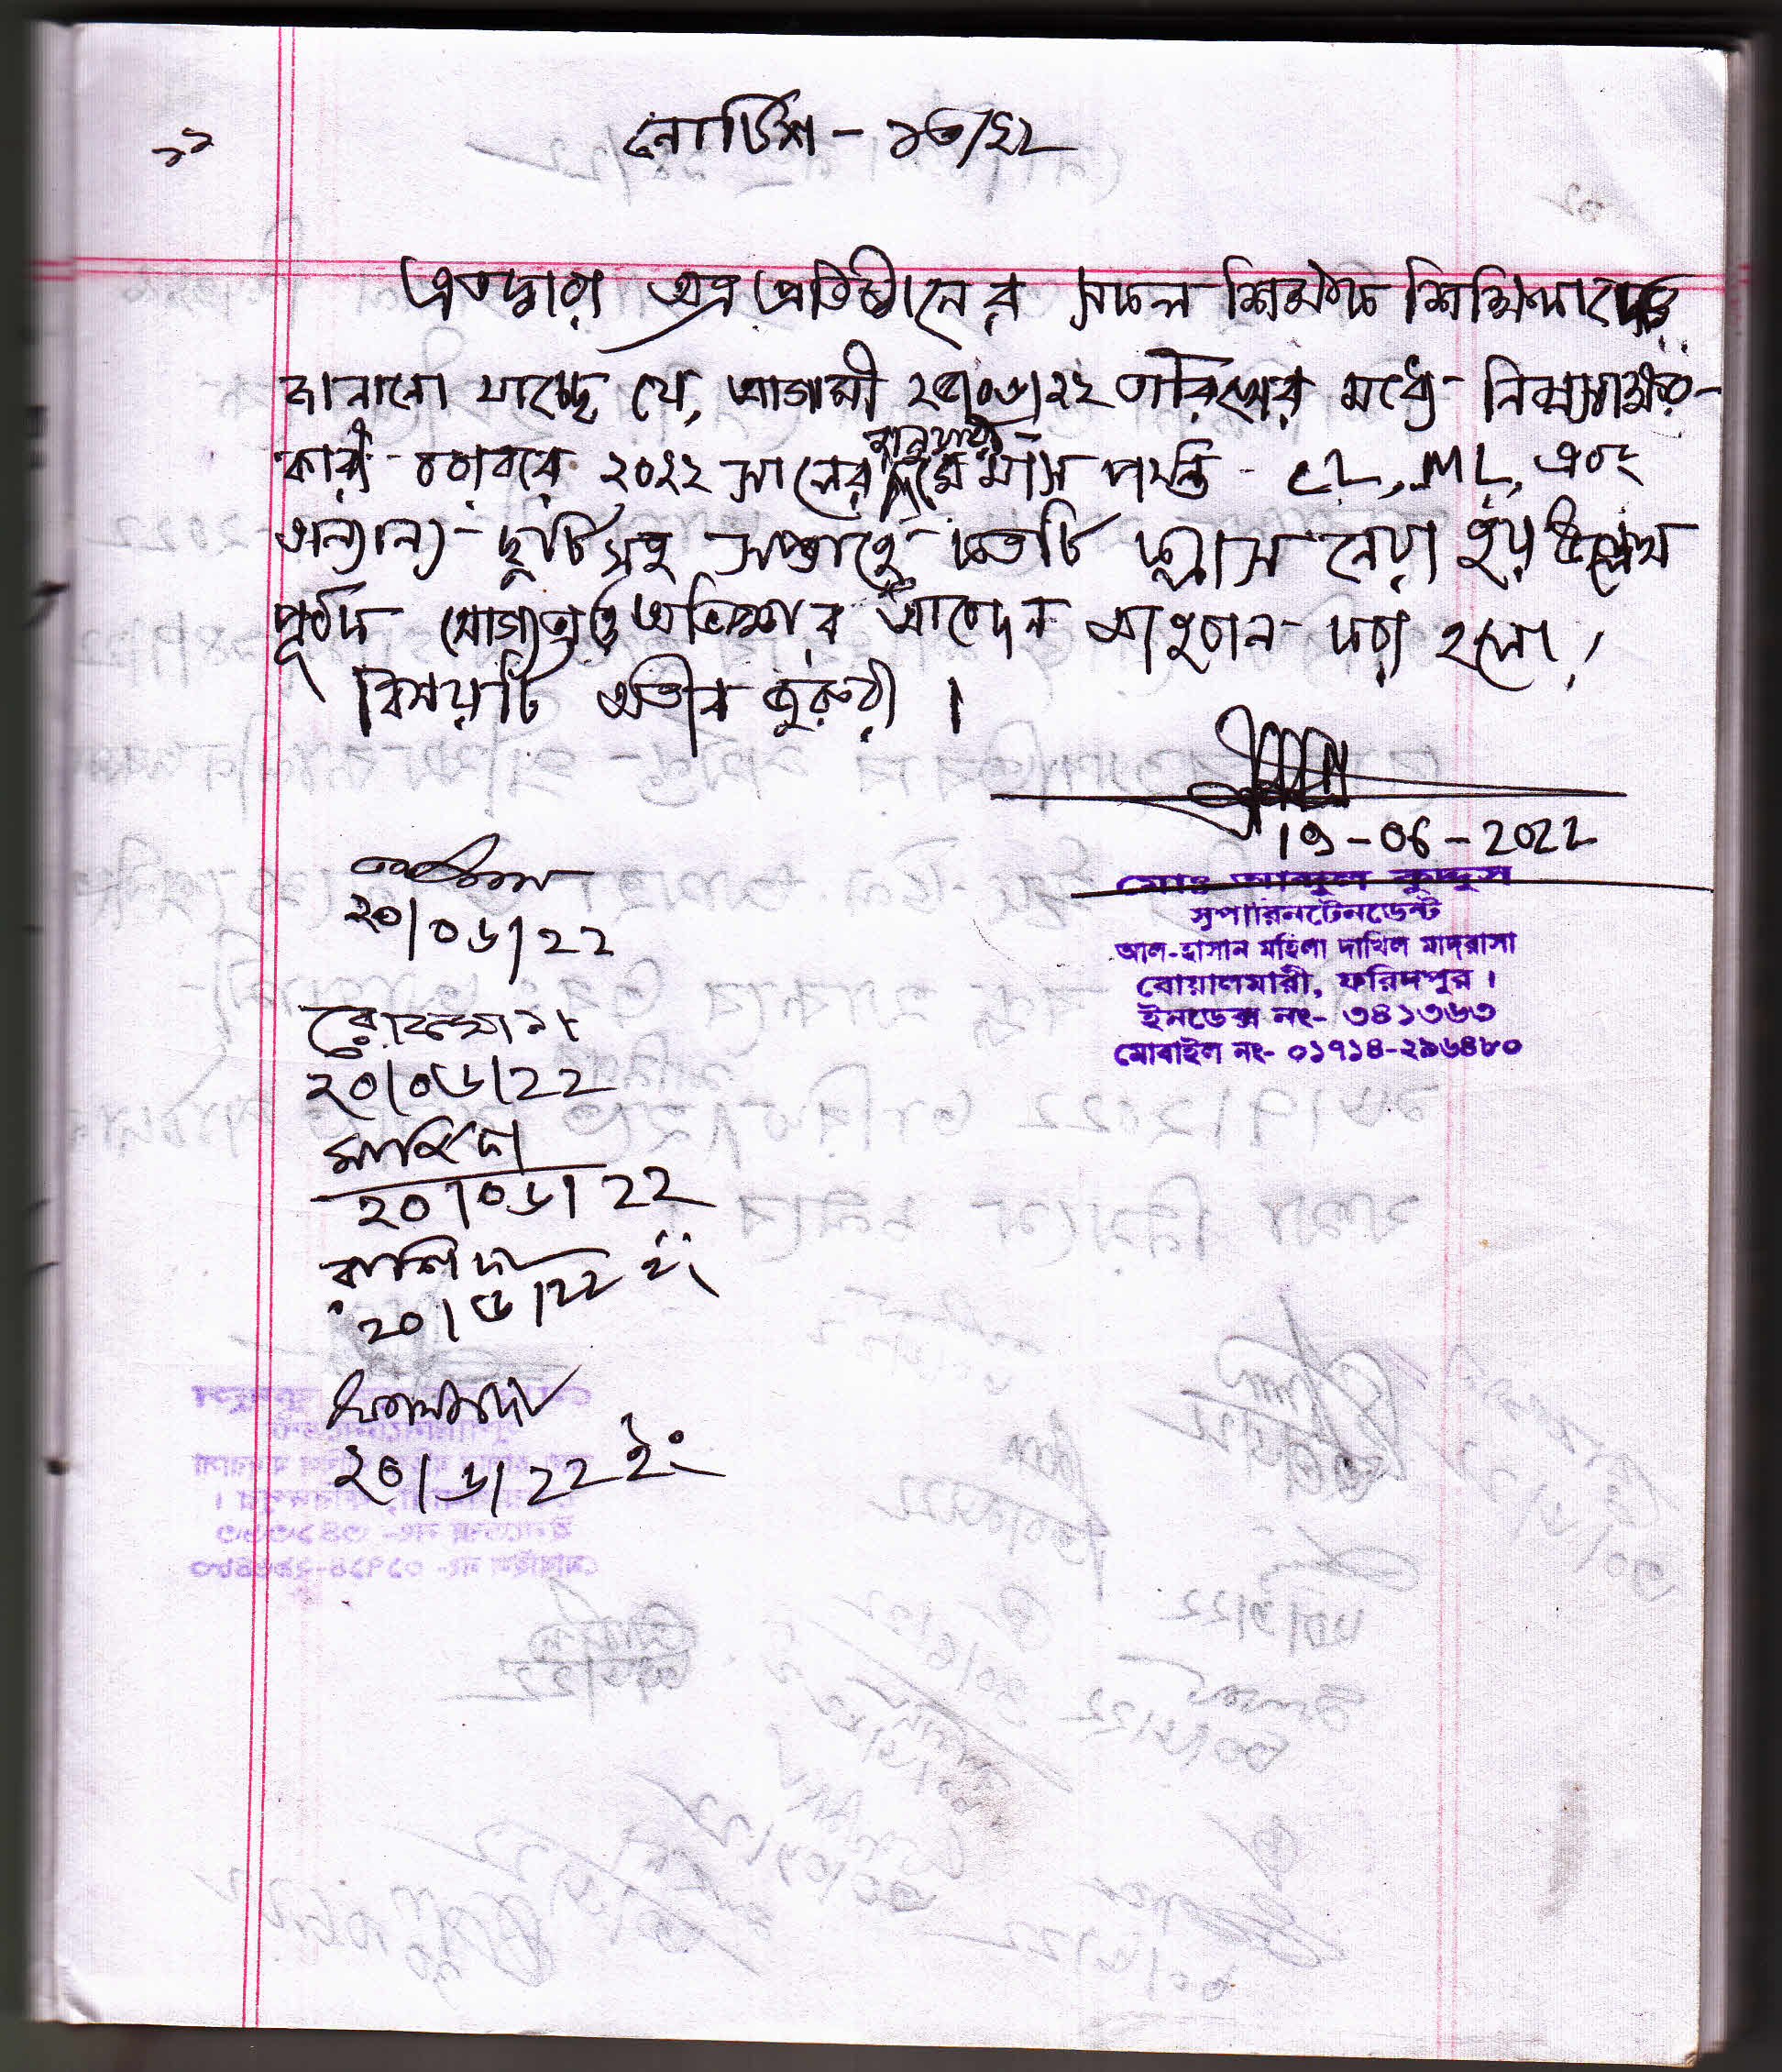 ১১
নোটিশ - ১৩/২২
এতদ্বারা অত্র প্রতিষ্ঠানের সকল শিক্ষক শিক্ষিকাদের
জানানো যাচ্ছে যে, আগামী ২৫/০৬/২২ তারিখের মধ্যে নিম্নস্বাক্ষর-
কারী বরাবরে ২০২২ সালের জানুয়ারী- মে মাস পর্যন্ত - CL, ML, এবং
অন্যান্য - ছুটি সহ সপ্তাহে কতটি ক্লাস নেয়া হয় উল্লেখ
পূর্বক যোগ্যতা ও অভিজ্ঞতার আবেদন আহবান করা হলো।
বিষয়টি অতীব জুরুরী ।
19-06-2022
মোঃ আব্দুল কুদ্দুস
সুপারিনটেনডেন্ট
আল-হাসান মহিলা দাখিল মাদরাসা
বোয়ালমারী, ফরিদপুর ।
ইনডেক্স নং- ৩৪১৩৬৩
মোবাইল নং- ০১৭১৪-২৯৬৪৮০
২০/০৬/২২
রোকসানা
২০/০৬/২২
২০/০৬/২২
রাশিদা
২০/৬/২২ ইং
২০/৬/২২ ইং